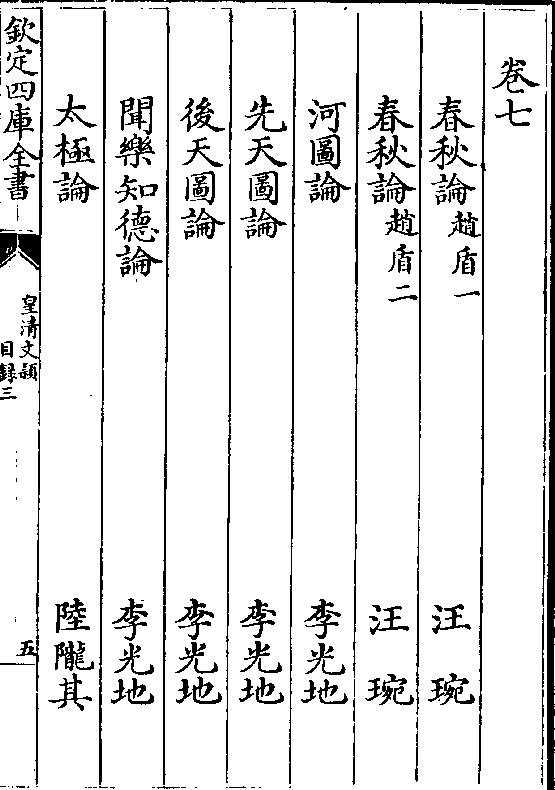 卷七
春秋論趙盾一 汪琬
春秋論趙盾二 汪琬
河圖論 李光地
先天圖論 李光地
後天圖論 李光地
聞樂知德論 李光地
太極論 陸隴其
欽定四庫全書
皇清文穎
目錄三
五